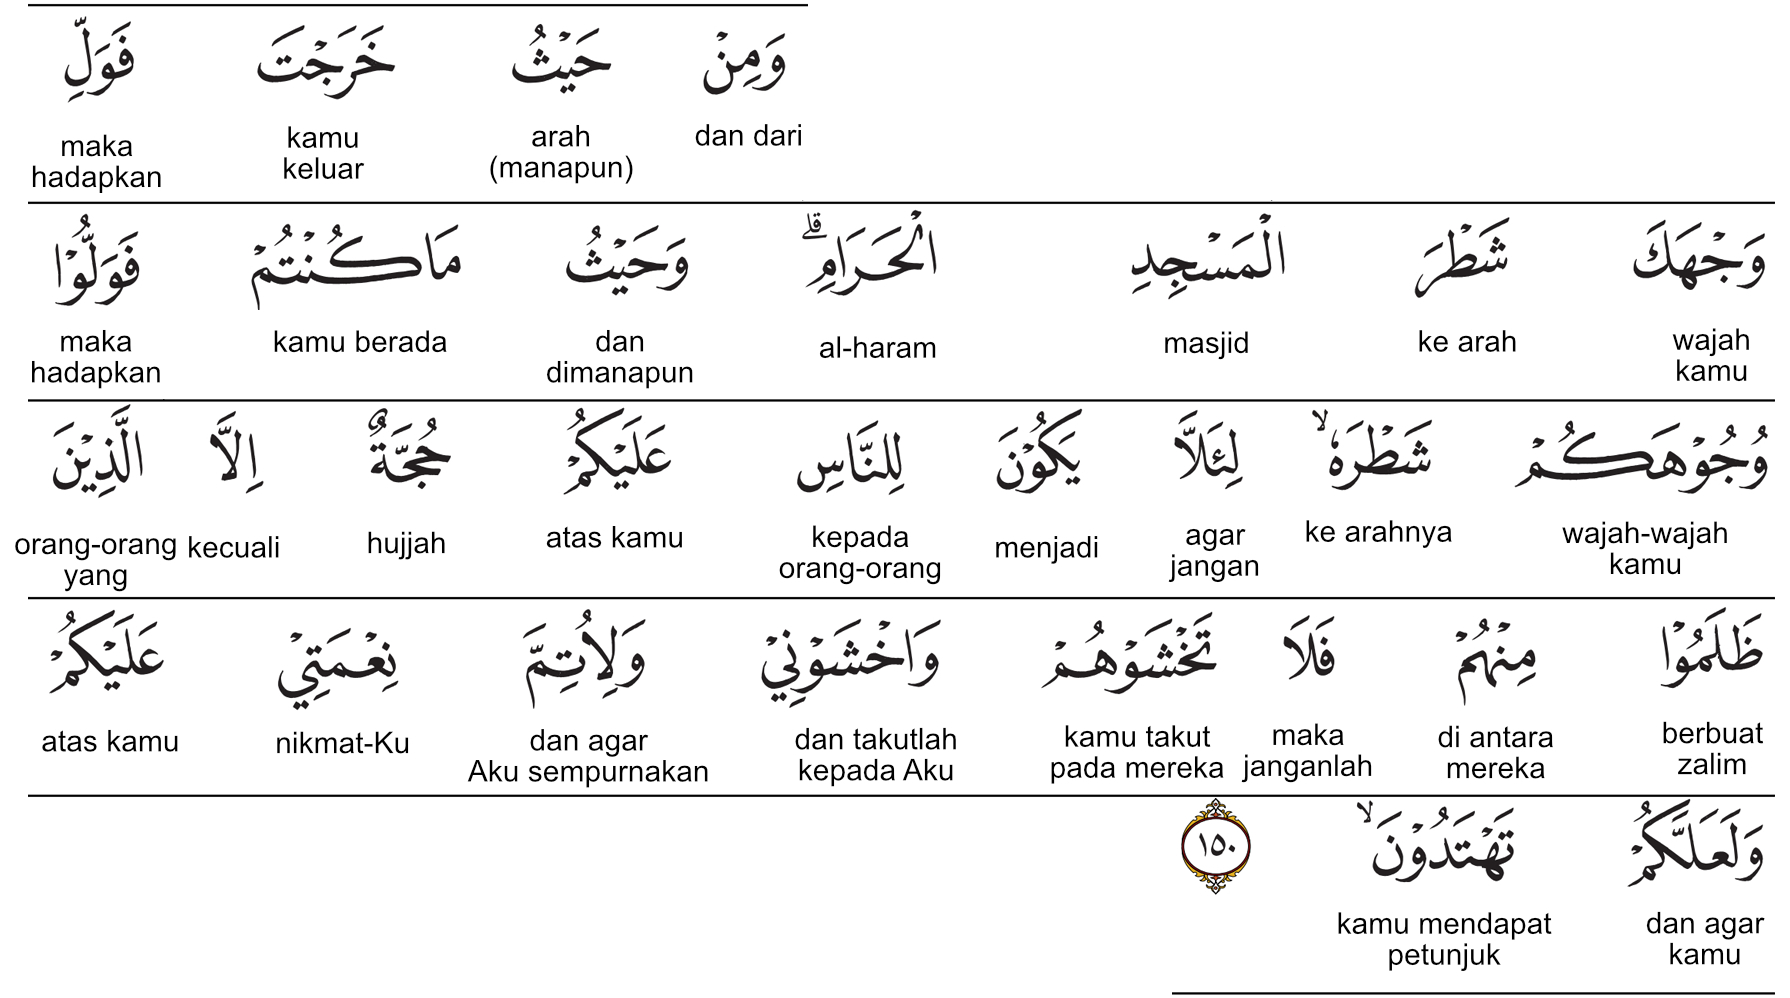 وَمِنْ حَيْثُ خَرَجْتَ فَوَلِّ
dan dari arah (manapun) kamu keluar maka hadapkan
وَجْهَكَ شَطْرَ الْمَسْجِدِ الْحَرَامِۗ وَحَيْثُ مَا كُنْتُمْ فَوَلُّوْا
wajah kamu ke arah masjid al-haram dan dimanapun kamu berada maka hadapkan
وُجُوْهَكُمْ شَطْرَهٗۙ لِئَلَّا يَكُوْنَ لِلنَّاسِ عَلَيْكُمْ حُجَّةٌ اِلَّا الَّذِيْنَ
wajah-wajah kamu ke arahnya agar jangan menjadi kepada orang-orang atas kamu hujjah kecuali orang-orang yang
ظَلَمُوْا مِنْهُمْ فَلَا تَخْشَوْهُمْ وَاخْشَوْنِيْ وَلِاُتِمَّ نِعْمَتِيْ عَلَيْكُمْ
berbuat zalim di antara mereka maka janganlah kamu takut pada mereka dan takutlah kepada Aku dan agar Aku sempurnakan nikmat-Ku atas kamu
وَلَعَلَّكُمْ تَهْتَدُوْنَۙ ١٥٠
dan agar kamu kamu mendapat petunjuk